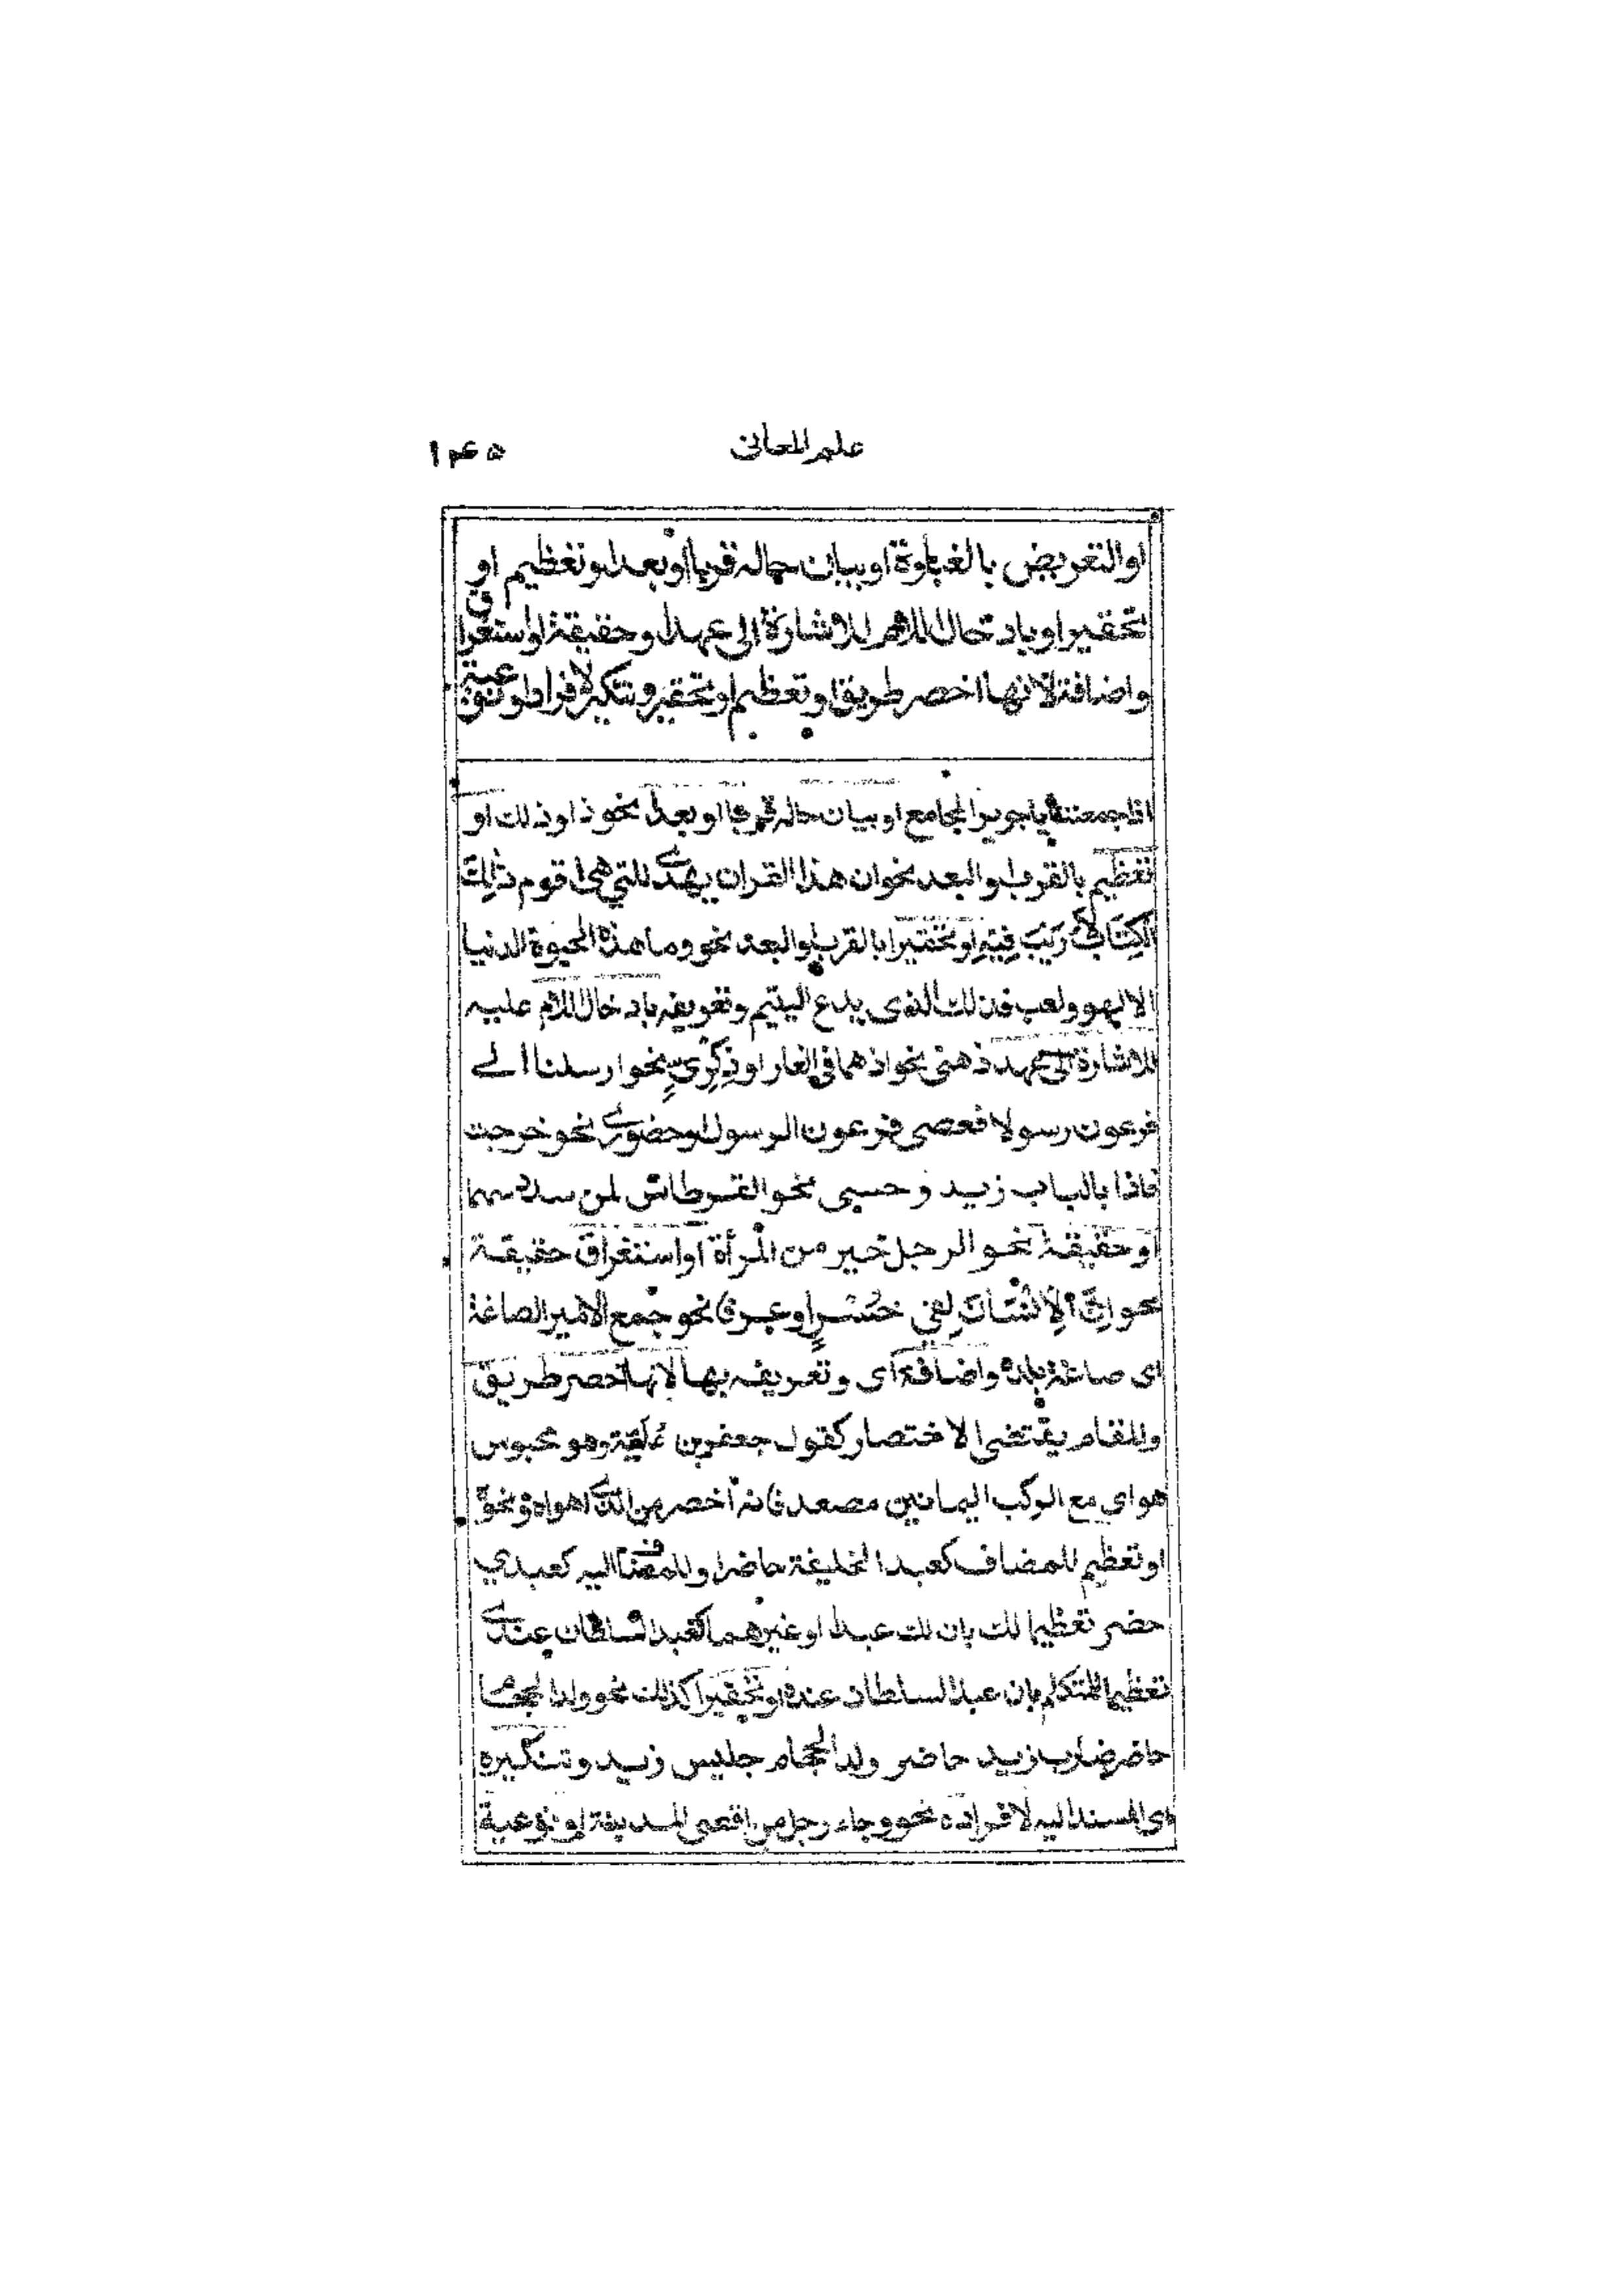 علم المعاني
١٤٥
او التعريض بالغباوة او بيان حاله قربا او بعدا وتعظيم او
تحقير او بادخال اللام للاشارة الى عهد او حقيقة او استغراق
واضافة لانها اخصر طريق او تعظيم او تحقير وتنكير لافراد او نوعية
اذا جمعتنا يا جرير المجامع او بيان حاله قربا او بعدا نحو ذا او ذلك او
تعظيم بالقرب او البعد نحو ان هذا القران يهدي للتي هي اقوم ذٰلِكَ
الْكِتَابُ لَا رَيْبَ فِيْهِ او تحقير ا بالقرب او البعد نحو وما هذه الحيوة الدنيا
الا لهو ولعب فذلك الذى يدع اليتيم وتعريفه بادخال اللام عليه
للاشارة الى عهد ذهنى نحو اذ هما فى الغار او ذِكْرِيّ نحو ارسلنا الے
فرعون رسولا فعصى فرعون الرسول او حضوري نحو خرجت
فاذا بالباب زيد و حسي نحو القرطاس لمن سدد سهما
او حقيقة نحو الرجل خير من المرأة او استغراق حقيقة
نحو اِنَّ الْاِنْسَانَ لَفِي خُسْرٍ او عرفا نحو جمع الامير الصاغة
اى صاغة بلده واضافة اى وتعريفه بها لانها اخصر طريق
والمقام يقتضى الاختصار كقول جعفر بن عُلْبَة وهو محبوس
هواي مع الركب اليمانين مصعد فانه اخصر من الذي اهواه ونحوه
او تعظيم للمضاف كعبد الخليفة حاضر او للمضاف اليه كعبدي
حضر تعظيما لك بان لك عبدا او غيرهما كعبد السلطان عندي
تعظيما للمتكلم بان عبد السلطان عنده او تحقيرا كذلك نحو ولد الحجام
حاضر ضارب زيد حاضر ولد الحجام جليس زيد وتنكيره
اى المسند اليه لافراده نحو وجاء رجل من اقصى المدينة او نوعية